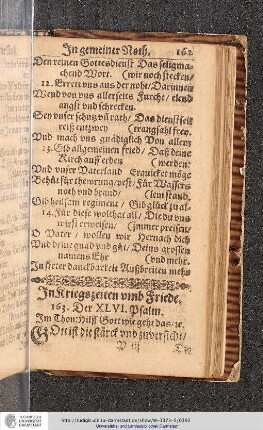 In gemeiner Noth. 162
Den reinen Gottesdienst Das seligma-
chend Wort. (wir noch stecken/
12. Errett vns aus der nohe/ Darinnen
Wend von vns allerseits Furcht/ elend
angst vnd schrecken.
Sey vnser schutz vñ rath/ Das dienstseil
reiß entzwey (trangsahl frey.
Vnd mach vns gnädiglich Von allem
13. Gib allgemeinen fried/ Daß deine
Kirch auff erden (werden:
Vnd vnser Vaterland Erquicket möge
Behüt für thewrung/pest/ Für Wassers
noth vnd brand/ (lem stand.
Gib heilsam regiment/ Gib glück zu al-
14. Für dieje wolthat all/ Die du vns
wirst erweisen/ (immer preisen/
O Vater/ wollen wir Hernach dich
Vnd deine gnad vnd güt/ Deins grossen
namens Ehr (vnd mehr.
In steter danckbarkeit Außbreiten mehr
In Kriegszeiten vmb Friede.
163. Der XLVI. Psalm.
Im Thon: Hilff Gott wie geht das/ ec.
GOtt ist die stärck vnd zuversicht/
P iij
http://tudigit.ulb.tu-darmstadt.de/show/W-3373-5/0392
Universitäts- und Landesbibliothek Darmstadt